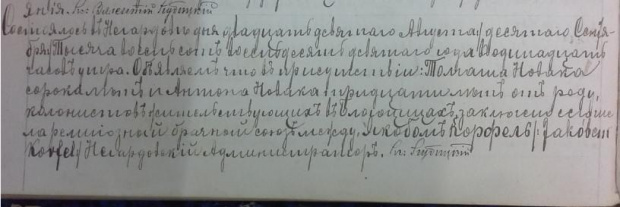 Состоялось въ Негардовѣ дня двадцать девятого Августа /десятого Сентя-
бря/ Тысяча восемьсотъ восемьдесятъ девятого года въ одинадцать
часовъ утра. Объявляемъ что въ присутствіи: Томаша Новака
сорока лѣтъ и Антона Новака тридцати лѣтъ отъ роду,
колонистовъ жительствующихъ въ заключенъ сего чи-
сла религіозной брачный союзъ между Якобомъ Корфель /: Jakobem
Korfel/ Негардовскій Администраторъ.